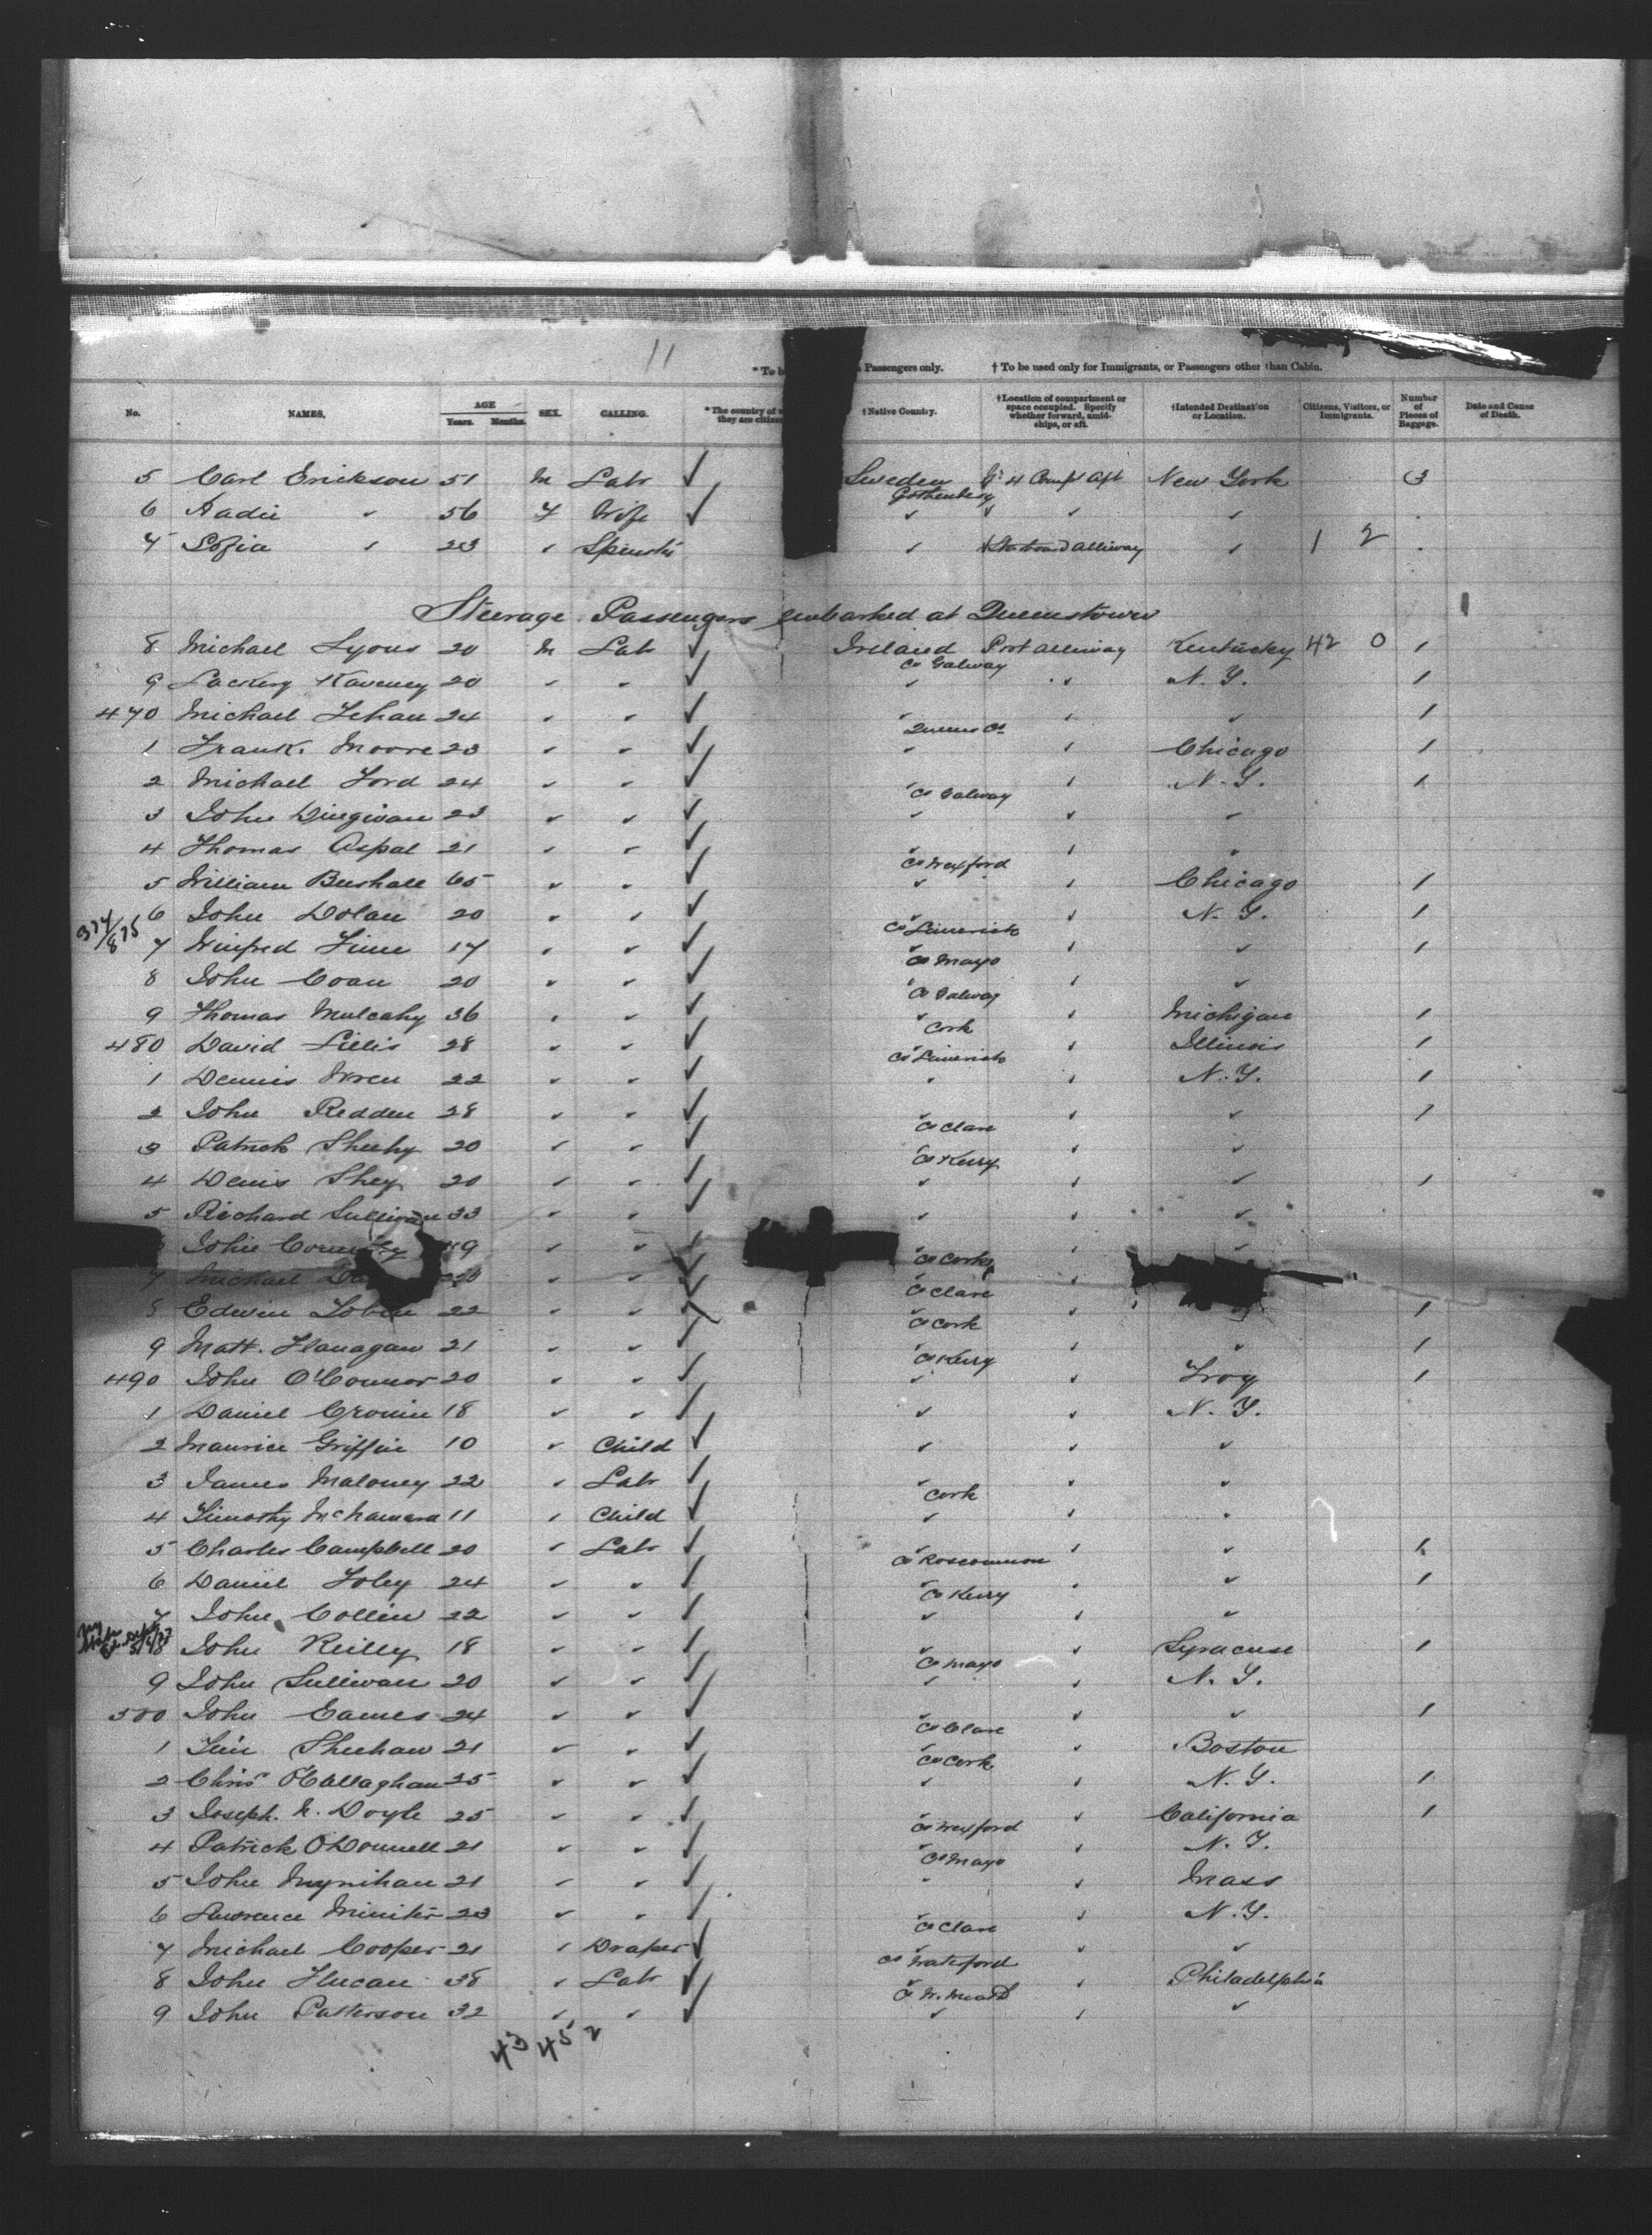 11
* To b Passengers only. † To be used only for Immigrants, or Passengers other than Cabin.
No. NAMES. AGE Years. Months. SEX. CALLING. * The country of they are citize † Native Country. † Location of compartment or space occupied. Specify whether forward, amidships, or aft. † Intended Destination or Location. Citizens, Visitors, or Immigrants. Number of Pieces of Baggage. Date and Cause of Death.
5 Carl Erickson 51 M Labr ✓ Sweden Gothenberg 4 Compt Aft New York 3
6 Aadie " 56 F Wife ✓ " " " "
7 Sofia " 23 " Spinstr " Starboard alleway " 1 2
Steerage Passengers embarked at Queenstown
8 Michael Lyons 20 M Labr ✓ Ireland Co Galway Port alleway Kentucky 42 0 1
9 Kaveney 20 " " ✓ " " N.Y. 1
470 Michael Fehan 24 " " ✓ " Queens Co " " 1
1 Frank. Moore 23 " " ✓ " " Chicago 1
2 Michael Ford 24 " " ✓ " Co Galway " N.Y. 1
3 John Dingivan 23 " " ✓ " " "
4 Thomas Aspal 21 " " ✓ " Co Wexford " "
5 William Bushall 65 " " ✓ " " Chicago 1
6 John Dolan 20 " " ✓ " Co Limerick " N.Y. 1
374/875
7 Winifred Finn 17 " " ✓ Co Mayo " " 1
8 John Coan 20 " " ✓ " Co Galway " "
9 Thomas Mulcahy 36 " " ✓ " Cork " Michigan 1
480 David Lillis 28 " " ✓ Co Limerick " Illinois 1
1 Dennis Wren 22 " " ✓ " " N.Y. 1
2 John Redden 28 " " ✓ " Co Clare " " 1
3 Patrick Sheehy 20 " " ✓ " Co Kerry " "
4 Denis Shey 20 " " ✓ " " " 1
5 Richard Sullivan 33 " " ✓ " " "
John 19 " " ✓ Co Cork " "
7 Michael " " ✓ Co Clare "
8 Edwin Tobin 22 " " ✓ " Co Cork " 1
9 Matt. Flanagan 21 " " ✓ Co Kerry " " 1
490 John O'Connor 20 " " ✓ " " Troy 1
1 Daniel Cronin 18 " " ✓ " " N.Y.
2 Maurice Griffin 10 " Child ✓ " " "
3 James Maloney 22 " Labr ✓ " Cork " "
4 Timothy McNamara 11 " Child ✓ " " "
5 Charles Campbell 20 " Labr ✓ Co Roscommon " " 1
6 Daniel Foley 24 " " ✓ Co Kerry " " 1
7 John Collin 22 " " ✓ " " "
8 John Reilly 18 " " ✓ " Co Mayo " Syracuse 1
9 John Sullivan 20 " " ✓ " " N.Y.
500 John Eames 24 " " ✓ Co Clare " " 1
1 Tim Sheehan 21 " " ✓ Co Cork " Boston
2 Chris O'Callaghan 25 " " ✓ " " N.Y. 1
3 Joseph. N. Doyle 25 " " ✓ " Co Wexford " California 1
4 Patrick O'Donnell 21 " " ✓ " Co Mayo " N.Y.
5 John Mynihan 21 " " ✓ " " Mass
6 Lawrence Miniter 23 " " ✓ Co Clare " N.Y.
7 Michael Cooper 21 " Draper ✓ " Co Waterford " "
8 John Flucan 38 " Labr ✓ Co W. Meath " Philadelphia
9 John Patterson 32 " " ✓ " " "
43 45 2